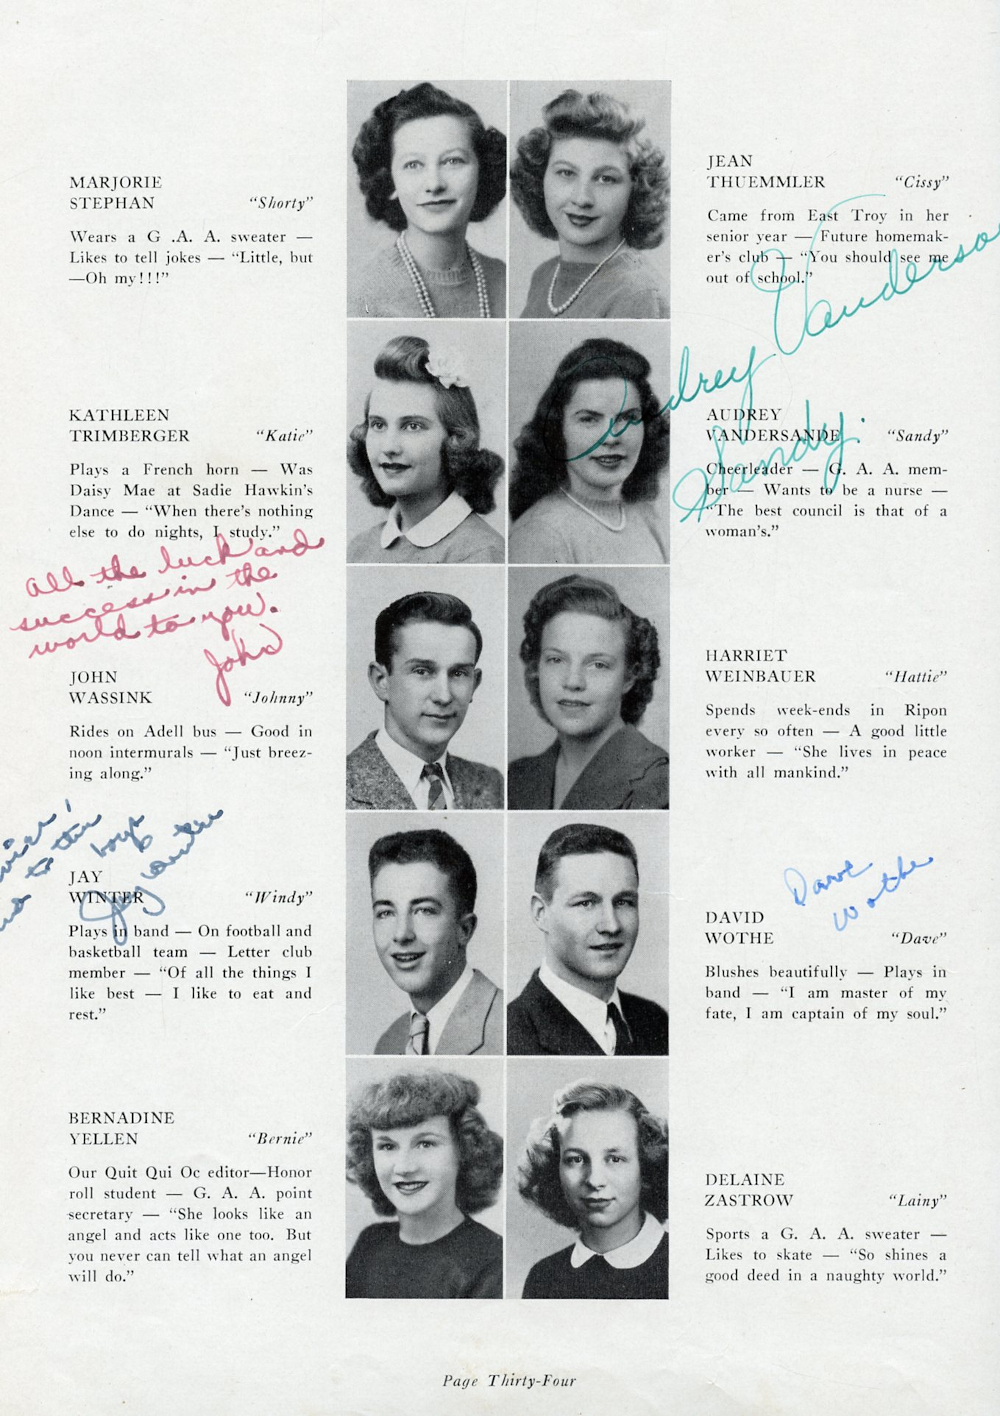 MARJORIE
STEPHAN "Shorty"
Wears a G .A. A. sweater —
Likes to tell jokes — "Little, but
—Oh my!!!"
JEAN
THUEMMLER "Cissy"
Came from East Troy in her
senior year — Future homemak-
er's club — "You should see me
out of school."
Audrey Vanderson
KATHLEEN
TRIMBERGER "Katie"
Plays a French horn — Was
Daisy Mae at Sadie Hawkin's
Dance — "When there's nothing
else to do nights, I study."
AUDREY
VANDERSANDE "Sandy"
Sandy.
Cheerleader — G. A. A. mem-
ber — Wants to be a nurse —
"The best council is that of a
woman's."
All the luck and
success in the
world to you.
John
JOHN
WASSINK "Johnny"
Rides on Adell bus — Good in
noon intermurals — "Just breez-
ing along."
HARRIET
WEINBAUER "Hattie"
Spends week-ends in Ripon
every so often — A good little
worker — "She lives in peace
with all mankind."
to the
boys
Jay
JAY
WINTER "Windy"
Plays in band — On football and
basketball team — Letter club
member — "Of all the things I
like best — I like to eat and
rest."
Dave
Wothe
DAVID
WOTHE "Dave"
Blushes beautifully — Plays in
band — "I am master of my
fate, I am captain of my soul."
BERNADINE
YELLEN "Bernie"
Our Quit Qui Oc editor—Honor
roll student — G. A. A. point
secretary — "She looks like an
angel and acts like one too. But
you never can tell what an angel
will do."
DELAINE
ZASTROW "Lainy"
Sports a G. A. A. sweater —
Likes to skate — "So shines a
good deed in a naughty world."
Page Thirty-Four